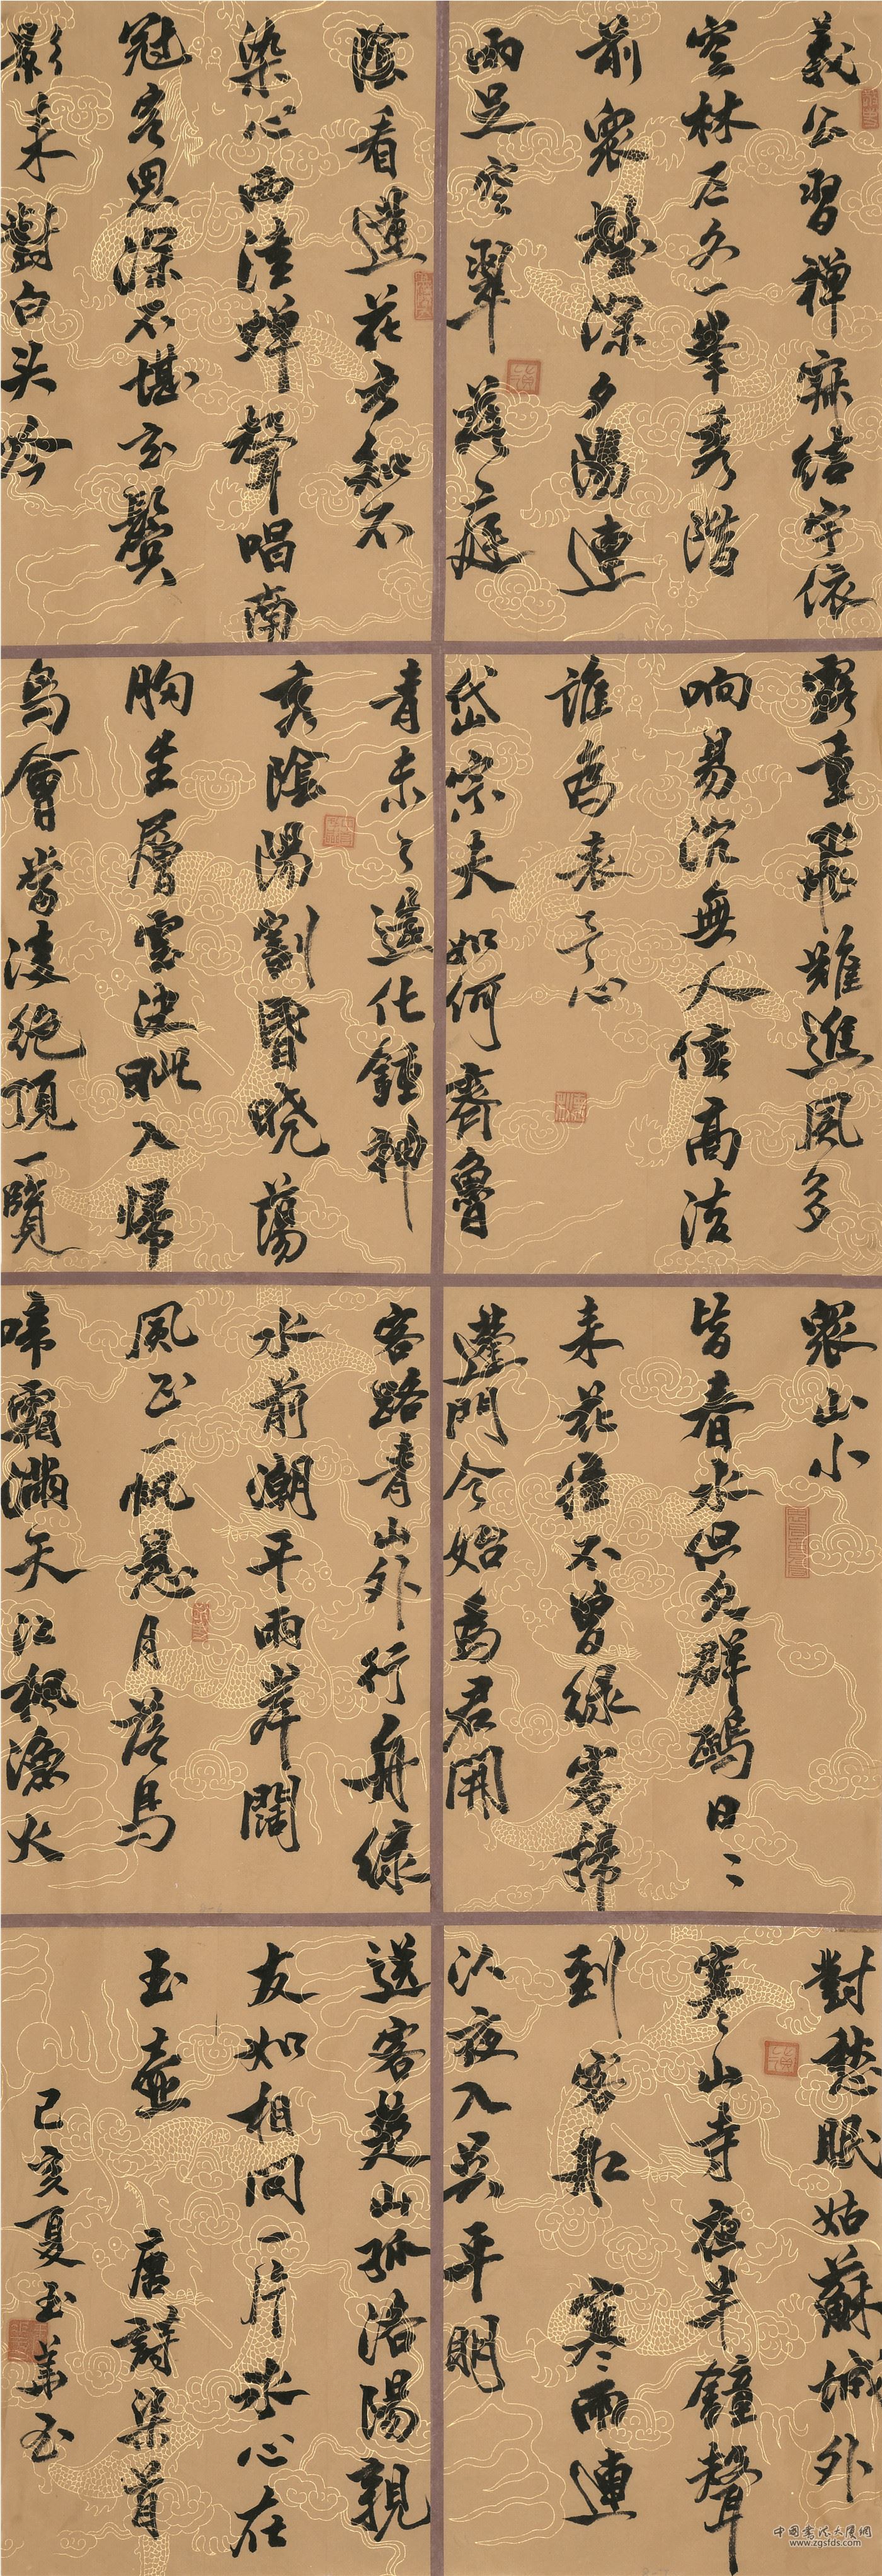 義公習禅寂结宇依
空林户外一峯秀階
前衆壑深夕陽連
雨足空翠落庭
陰看蓮花方知不
染心西陸蝉聲唱南
冠客思深不堪玄鬓
影来對白头吟
露重飛難進風多
响易沉無人信高洁
誰為表予心
岱宗夫如何齊魯
青未了造化鍾神
秀陰陽割昏曉蕩
胸生層雲决眦入歸
鸟會當凌绝頂一覽
衆山小
皆春水但見群鷗日〻
来花徑不曾緣客掃
蓬門今始為君開
客路青山外行舟绿
水前潮平兩岸闊
風正一帆悬月落烏
啼霜滿天江枫漁火
對愁眠姑蘇城外
寒山寺夜半鐘聲
到客船 寒雨連
江夜入吴平明
送客楚山孤洛陽親
友如相問一片冰心在
玉壺 唐詩柒首
己亥夏玉
中国书法大厦網
www.zgsfds.com